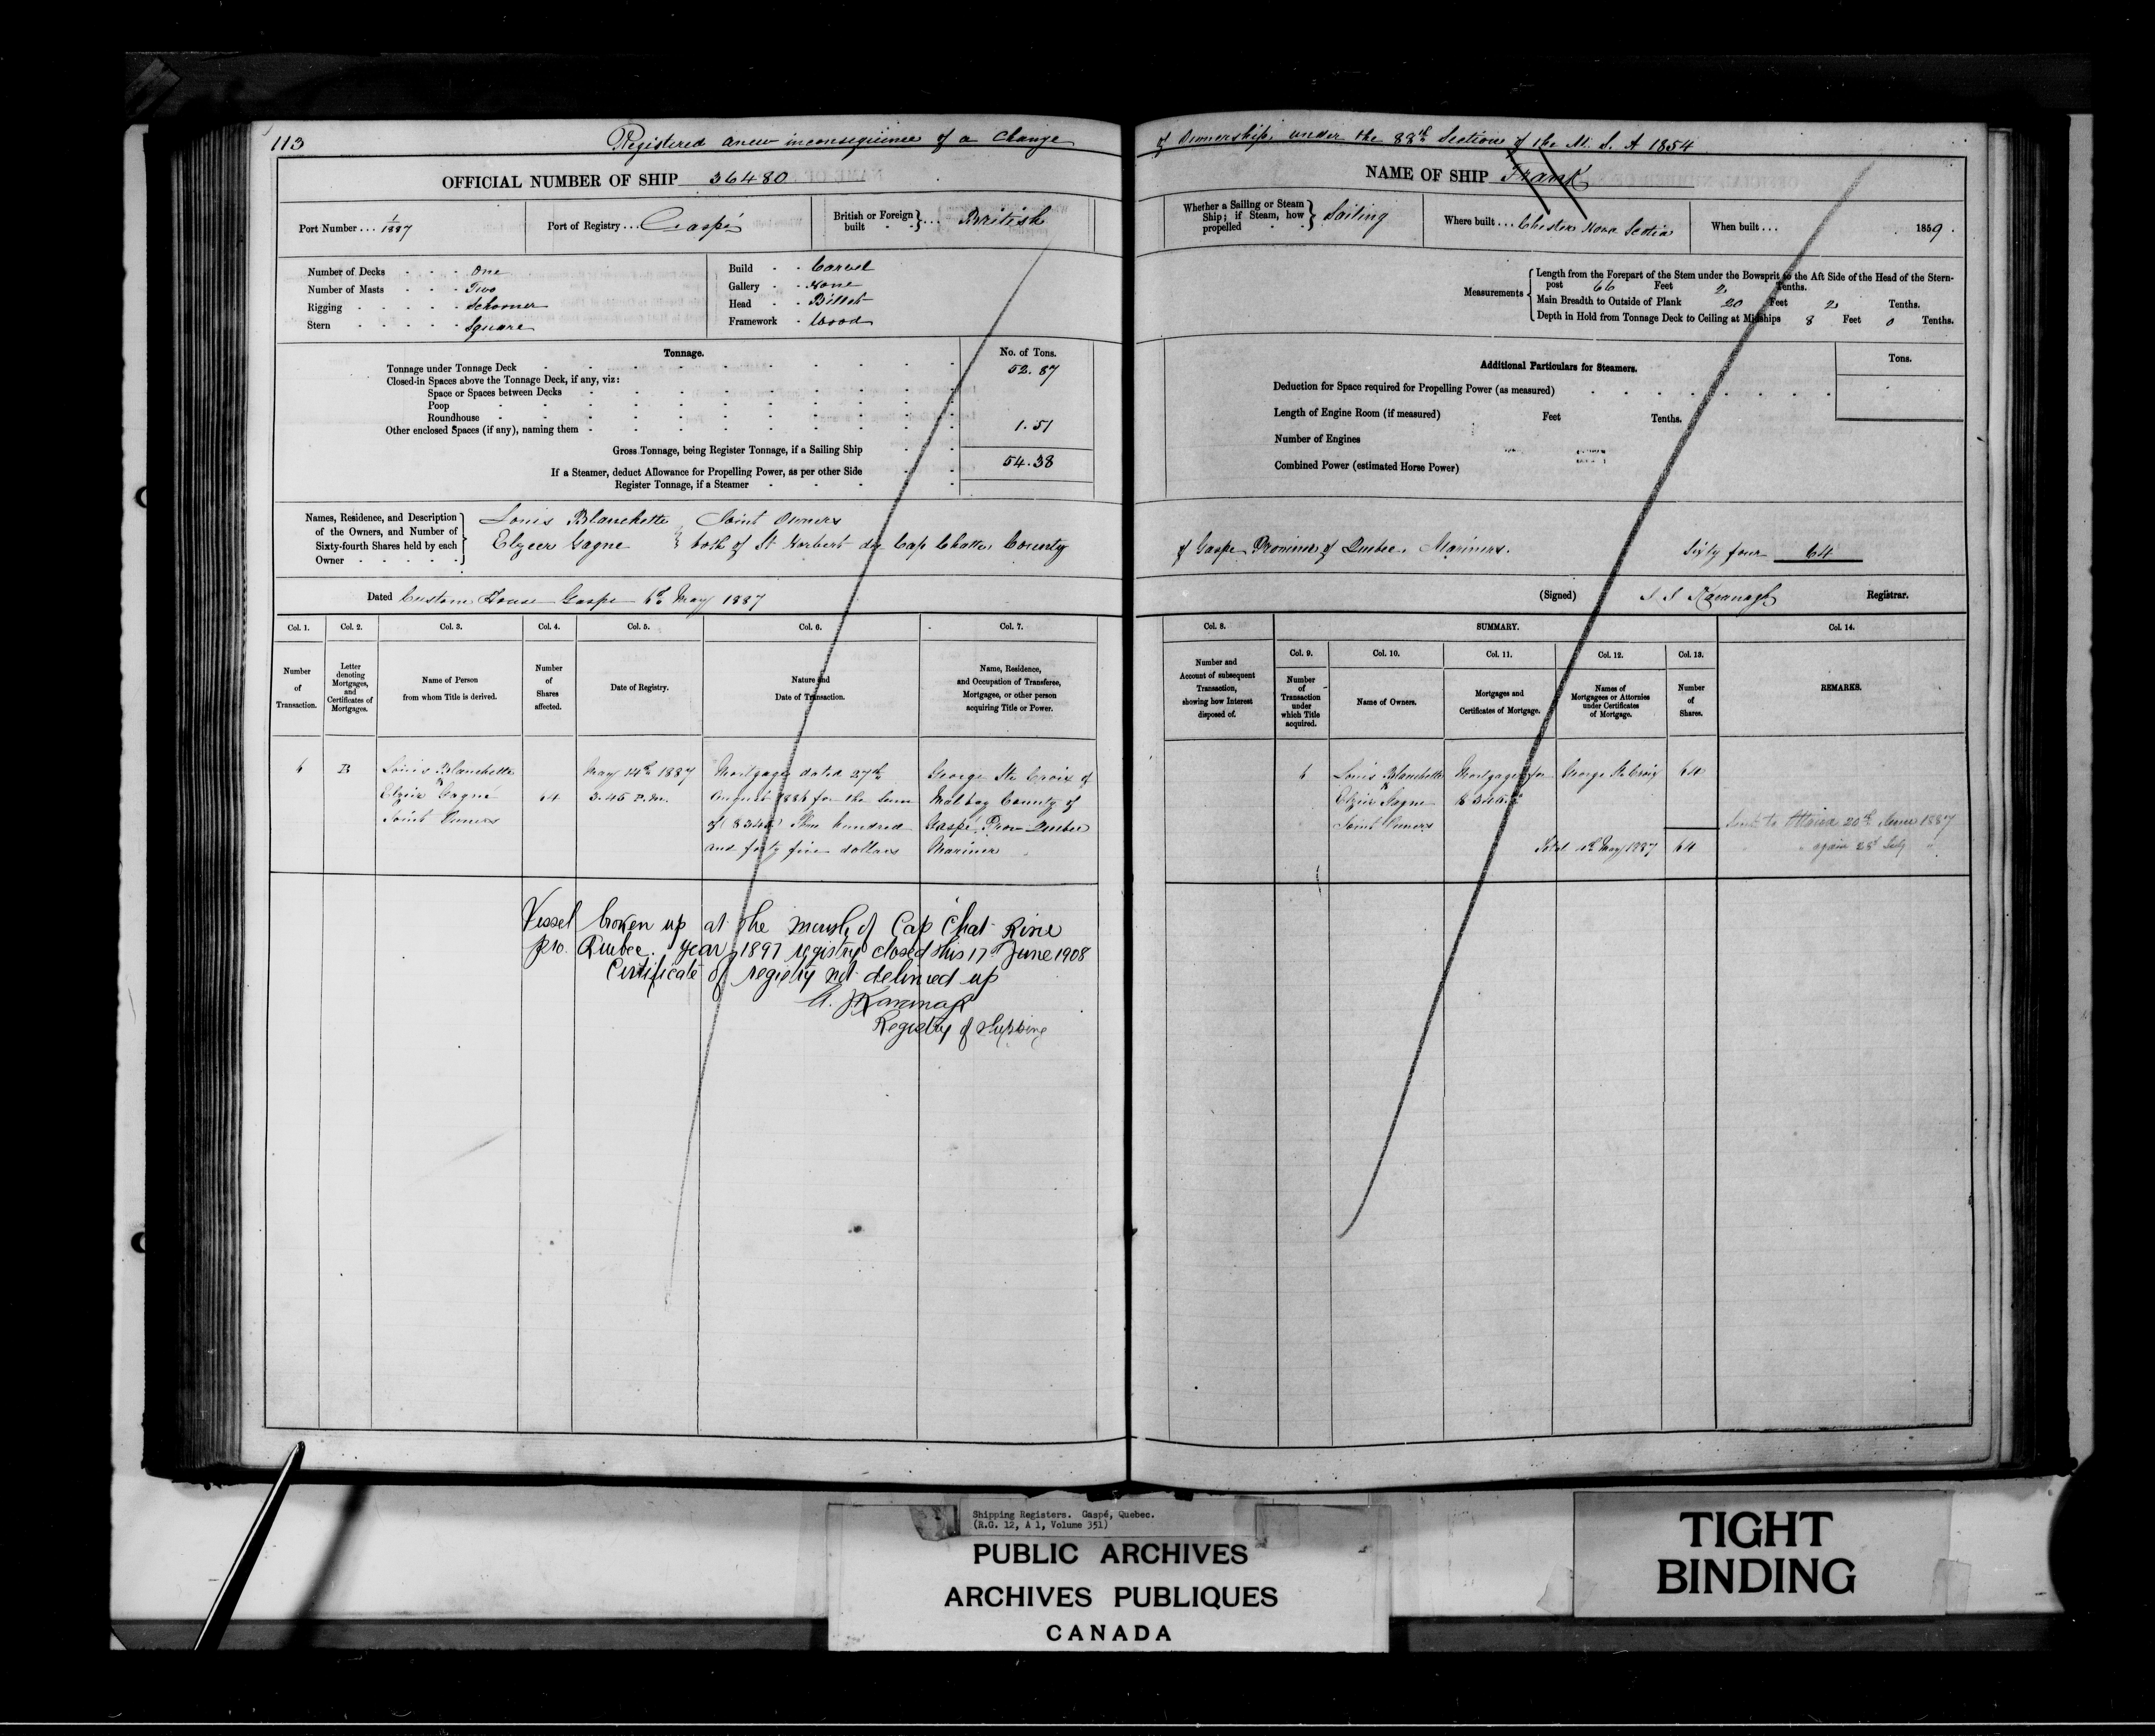 113
Registered anew inconsequence of a Change of Ownership under the 88th Section of the M. S. A 1854
OFFICIAL NUMBER OF SHIP 36480
NAME OF SHIP Frank
Port Number ... 1/1887
Port of Registry ... Gaspé
British or Foreign built ... British
Whether a Sailing or Steam Ship; if Steam, how propelled Sailing
Where built ... Chester Nova Scotia
When built ... 1859.
Number of Decks - - - One
Number of Masts - - - Two
Rigging - - - - - Schooner
Stern - - - - - Square
Build - - Carvel
Gallery - - None
Head - - Billet
Framework - Wood
Measurements
Length from the Forepart of the Stem under the Bowsprit to the Aft Side of the Head of the Stern-
post 66 Feet 2 Tenths.
Main Breadth to Outside of Plank 20 Feet 2 Tenths.
Depth in Hold from Tonnage Deck to Ceiling at Midships 8 Feet 0 Tenths.
Tonnage.
No. of Tons.
Tonnage under Tonnage Deck 52.87
Closed-in Spaces above the Tonnage Deck, if any, viz:
Space or Spaces between Decks
Poop
Roundhouse
Other enclosed Spaces (if any), naming them 1.51
Gross Tonnage, being Register Tonnage, if a Sailing Ship 54.38
If a Steamer, deduct Allowance for Propelling Power, as per other Side
Register Tonnage, if a Steamer
Additional Particulars for Steamers.
Tons.
Deduction for Space required for Propelling Power (as measured)
Length of Engine Room (if measured) Feet Tenths.
Number of Engines
Combined Power (estimated Horse Power)
Names, Residence, and Description
of the Owners, and Number of
Sixty-fourth Shares held by each
Owner
Louis Blanchette Joint Owners
Elzeer Gagne both of St Norbert du Cap Chatte County of Gaspe Province of Quebec, Mariners. Sixty four 64
Dated Custom House Gaspe 6th May 1887
(Signed) J J Kavanagh Registrar.
Col. 1.
Number
of
Transaction.
Col. 2.
Letter
denoting
Mortgages,
and
Certificates of
Mortgages.
Col. 3.
Name of Person
from whom Title is derived.
Col. 4.
Number
of
Shares
affected.
Col. 5.
Date of Registry.
Col. 6.
Nature and
Date of Transaction.
Col. 7.
Name, Residence,
and Occupation of Transferee,
Mortgagee, or other person
acquiring Title or Power.
Col. 8.
Number and
Account of subsequent
Transaction,
showing how Interest
disposed of.
SUMMARY.
Col. 9.
Number
of
Transaction
under
which Title
acquired.
Col. 10.
Name of Owners.
Col. 11.
Mortgages and
Certificates of Mortgage.
Col. 12.
Names of
Mortgagees or Attornies
under Certificates
of Mortgage.
Col. 13.
Number
of
Shares.
Col. 14.
REMARKS.
6
B
Louis Blanchette
& Elzeir Gagné
Joint Owners
64
May 14th 1887
3.45 P.M.
Mortgage dated 27th
August 1886 for the sum
of $345 Three hundred
and forty five dollars
George Ste Croix of
Malbay County of
Gaspé Prov Quebec
Mariner
6
Louis Blanchette
& Elzeir Gagne
Joint Owners
Mortgage for
$345
George Ste Croix
64
Total May 1887 64
Sent to Ottawa 20th June 1887
" again 28th July "
Vessel broken up at the mouth of Cap Chat River
pro. Quebec. year 1897 registry closed this 17th June 1908
Certificate of registry not delivered up
Kavanagh
Registry of Shipping
Shipping Registers. Gaspé, Quebec.
(R.G. 12, A 1, Volume 351)
PUBLIC ARCHIVES
ARCHIVES PUBLIQUES
CANADA
TIGHT
BINDING